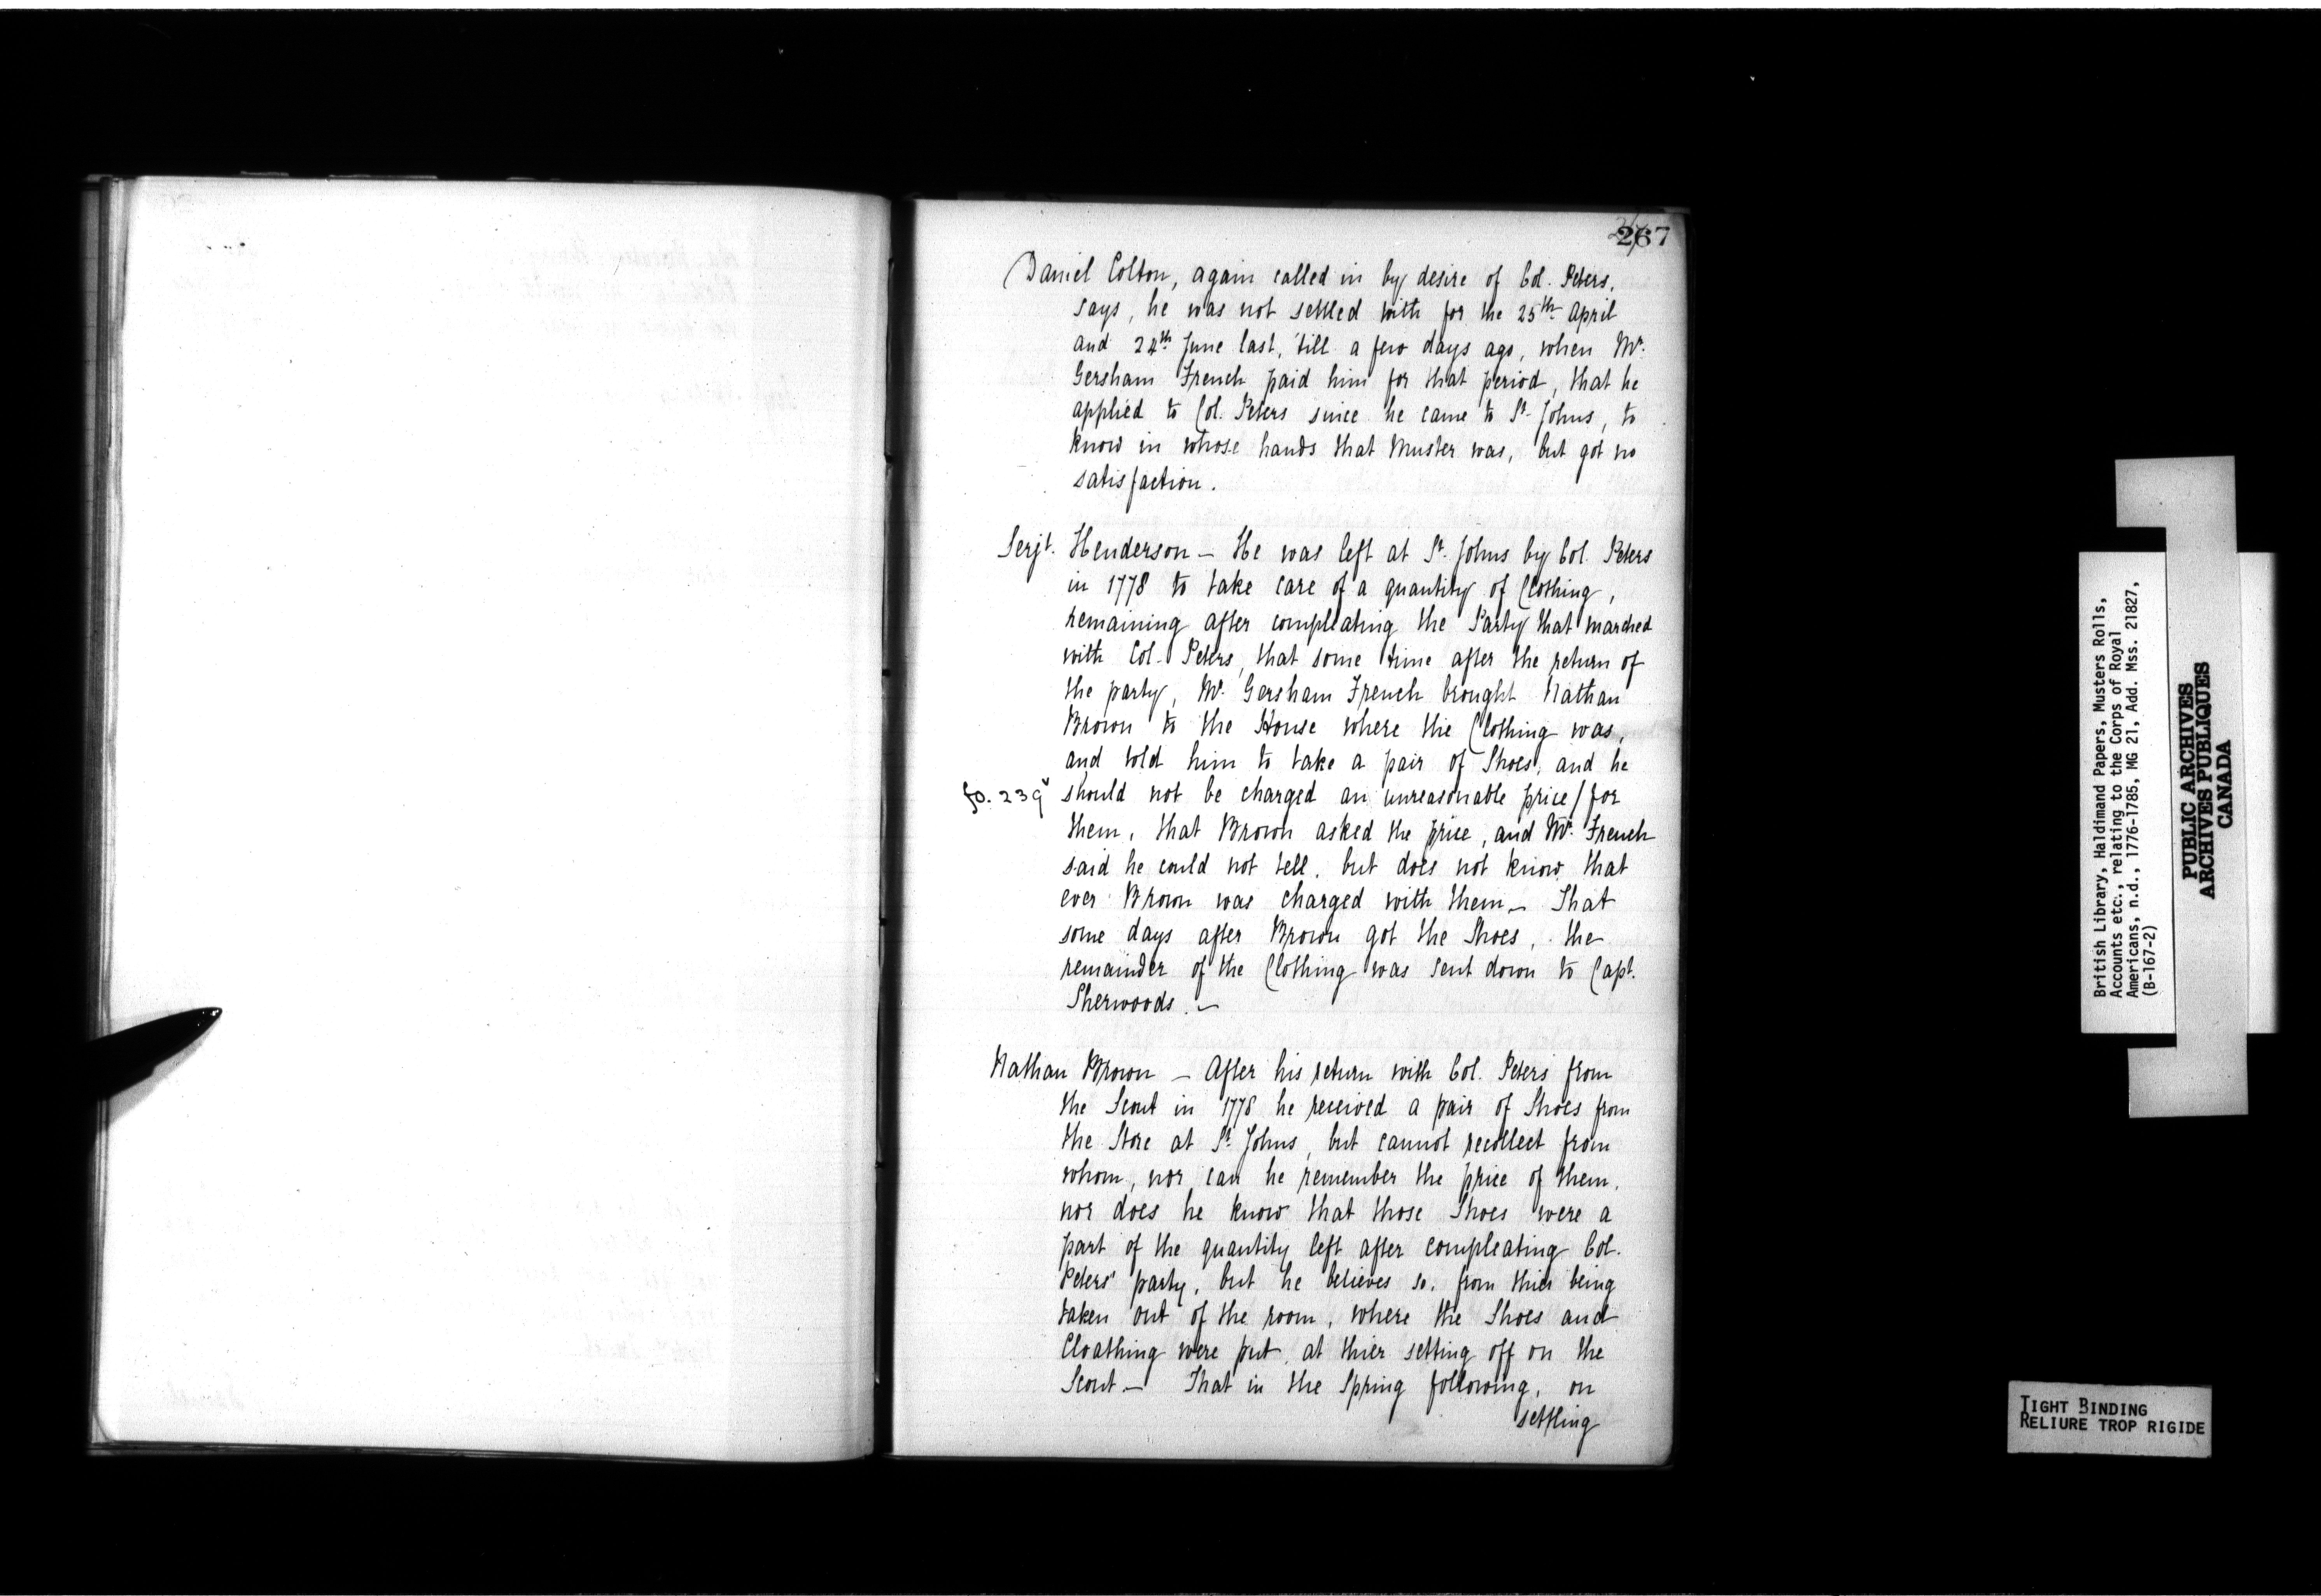 267
Daniel Colton, again called in by desire of Col. Peters,
says, he was not settled with for the 25th April
and 24th June last, 'till a few days ago, when Mr.
Gersham French paid him for that period, that he
applied to Col. Peters since he came to St. Johns, to
know in whose hands that Muster was, but got no
satisfaction.
Serjt. Henderson — He was left at St. Johns by Col. Peters
in 1778 to take care of a quantity of Clothing,
remaining after compleating the Party that marched
with Col. Peters, that some time after the return of
the party, Mr. Gersham French brought Nathan
Brown to the House where the Clothing was,
and told him to take a pair of Shoes, and he
fo. 239v should not be charged an unreasonable price / for
them, that Brown asked the price, and Mr. French
said he could not tell, but does not know that
ever Brown was charged with them — That
some days after Brown got the Shoes, the
remainder of the Clothing was sent down to Capt.
Sherwoods. —
Nathan Brown — After his return with Col. Peters from
the Scout in 1778 he received a pair of Shoes from
the Store at St. Johns, but cannot recollect from
whom, nor can he remember the price of them,
nor does he know that those Shoes were a
part of the quantity left after compleating Col.
Peters' party, but he believes so, from thier being
taken out of the room, where the Shoes and
Cloathing were put, at thier setting off on the
Scout — That in the Spring following, on
settling
British Library, Haldimand Papers, Musters Rolls,
Accounts etc., relating to the Corps of Royal
Americans, n.d., 1776-1785, MG 21, Add. Mss. 21827,
(B-167-2)
PUBLIC ARCHIVES
ARCHIVES PUBLIQUES
CANADA
TIGHT BINDING
RELIURE TROP RIGIDE